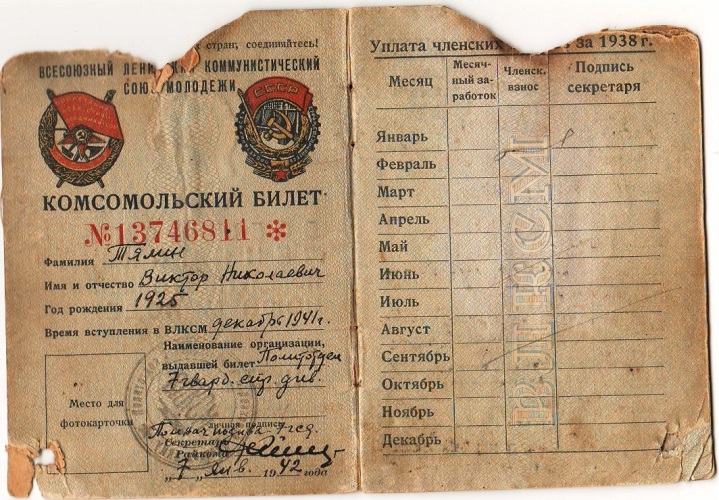 стран, соединяйтесь!
ВСЕСОЮЗНЫЙ ЛЕНИНСКИЙ КОММУНИСТИЧЕСКИЙ
СОЮЗ МОЛОДЕЖИ
СССР
КОМСОМОЛЬСКИЙ БИЛЕТ
№13746811 *
Фамилия Тямин
Имя и отчество Виктор Николаевич
Год рождения 1925
Время вступления в ВЛКСМ декабрь 1941г.
Наименование организации,
выдавшей билет Политотдел
7 гвард. стр. див.
Место для
фотокарточки
личная подпись
Секретарь
Райкома
"7" янв. 1942 года
Уплата членских за 1938 г.
Месяц
Месяч-
ный за-
работок
Членск.
взнос
Подпись
секретаря
Январь
Февраль
Март
Апрель
Май
Июнь
Июль
Август
Сентябрь
Октябрь
Ноябрь
Декабрь
ВЛКСМ